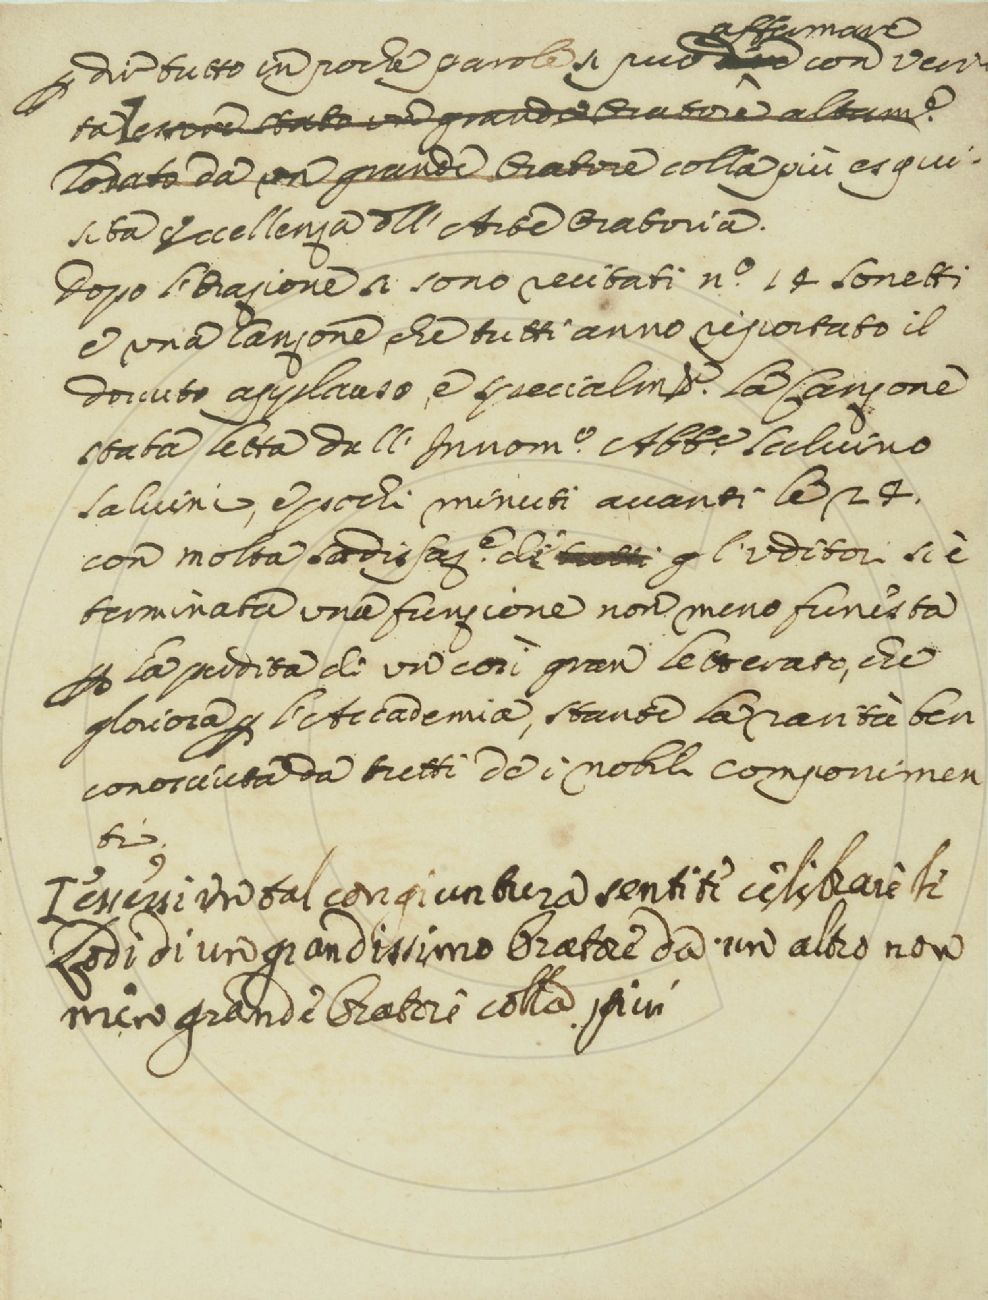 affermare
p dir tutto in poche parole si può dire con veri
tà essere stato un grande Oratore altam.e
Lodato da un grande Oratore colla più esqui-
sita Eccellenza dell' Arte Oratoria.
Dopo l'Orazione si sono recitati n.o 14 Sonetti
e una Canzone che tutti anno riportato il
dovuto applauso, e specialm.e la Canzone
stata letta dall' Innom.o Abb.e Salvino
Salvini, e pochi minuti avanti le 24.
con molta sodisfaz.e di tutti gl'Uditori si è
terminata una funzione non meno funesta
p la perdita di un così gran letterato, che
gloriosa p l'Accademia, stante la rarità ben
conosciuta da tutti de i nobili componimen
ti.
Essersi in tal congiuntura sentite celebrare le
Lodi di un grandissimo Oratore da un altro non
meno grande Oratore colla più